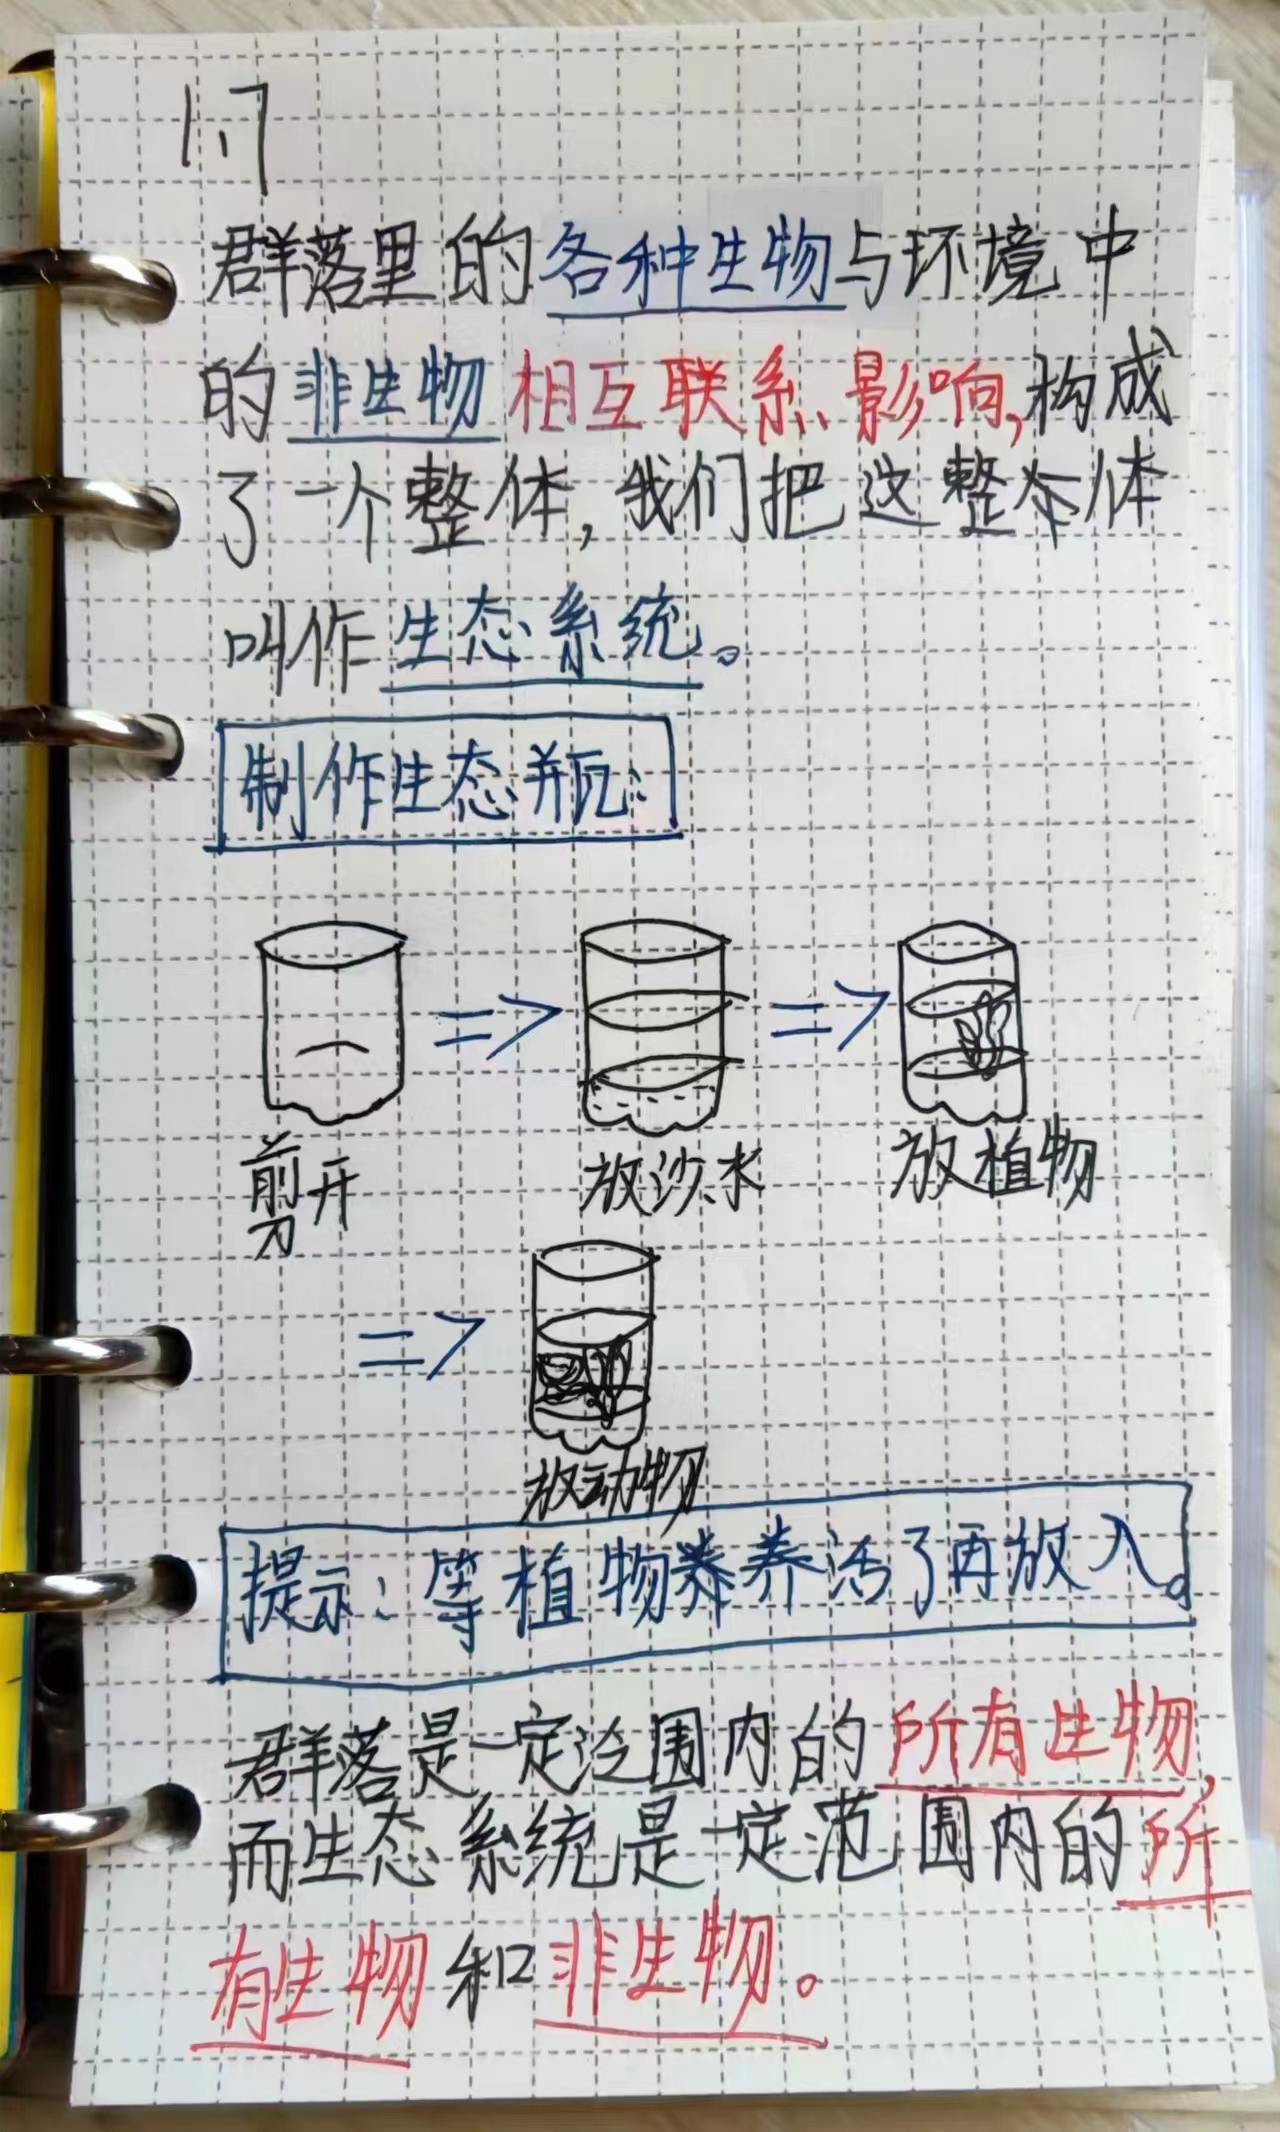 1.7
群落里的各种生物与环境中
的非生物相互联系、影响,构成
了一个整体,我们把这整个体
叫作生态系统。
制作生态瓶:
剪开 放沙水 放植物
放动物
提示:等植物养活了再放入。
群落是一定范围内的所有生物,
而生态系统是一定范围内的所
有生物和非生物。